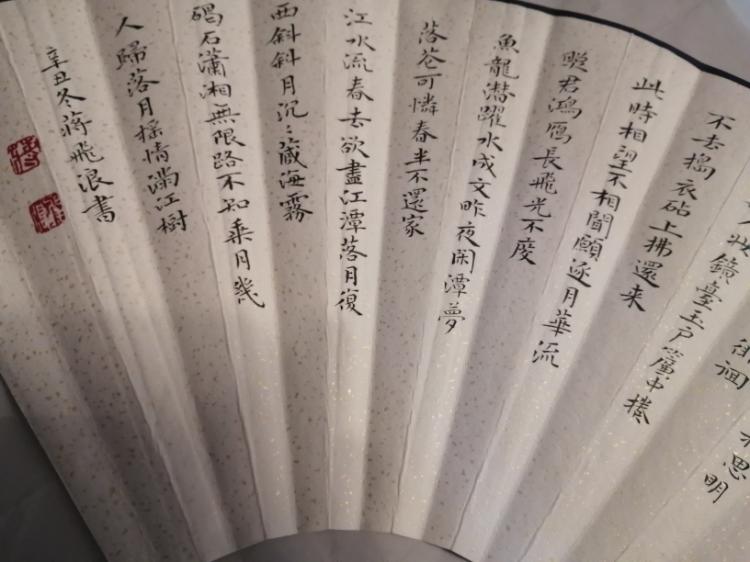 妝鏡臺玉戶簾中捲
不去搗衣砧上拂還来
此時相望不相聞願逐月華流
照君鴻鴈長飛光不度
魚龍潛躍水成文昨夜閑潭夢
落花可憐春半不還家
江水流春去欲盡江潭落月復
西斜斜月沉〻藏海霧
碣石瀟湘無限路不知乗月幾
人歸落月搖情滿江樹
辛丑冬蔣飛浪書